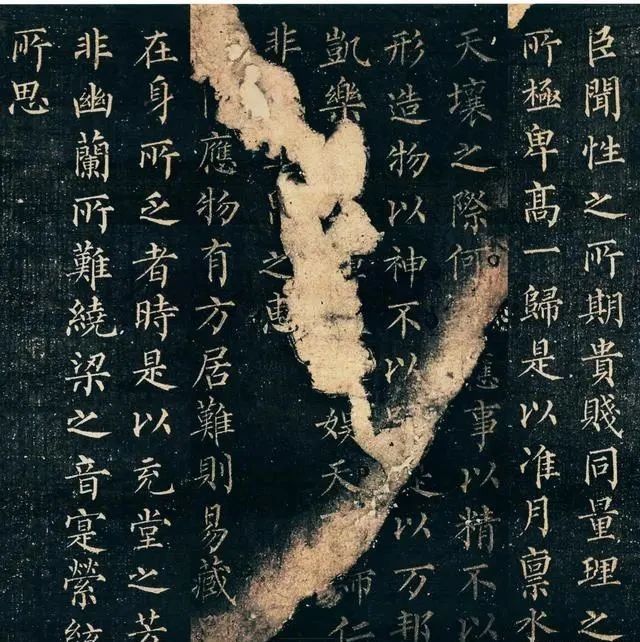 臣聞性之所期貴賤同量理之
所極卑高一歸是以准月禀水
天壤之際何應事以精不以
形造物以神不以以万邦
凱樂娛天仁
非之惠
應物有方居難則易藏
在身所乏者時是以充堂之芳
非幽蘭所難繞梁之音寔縈絃
所思